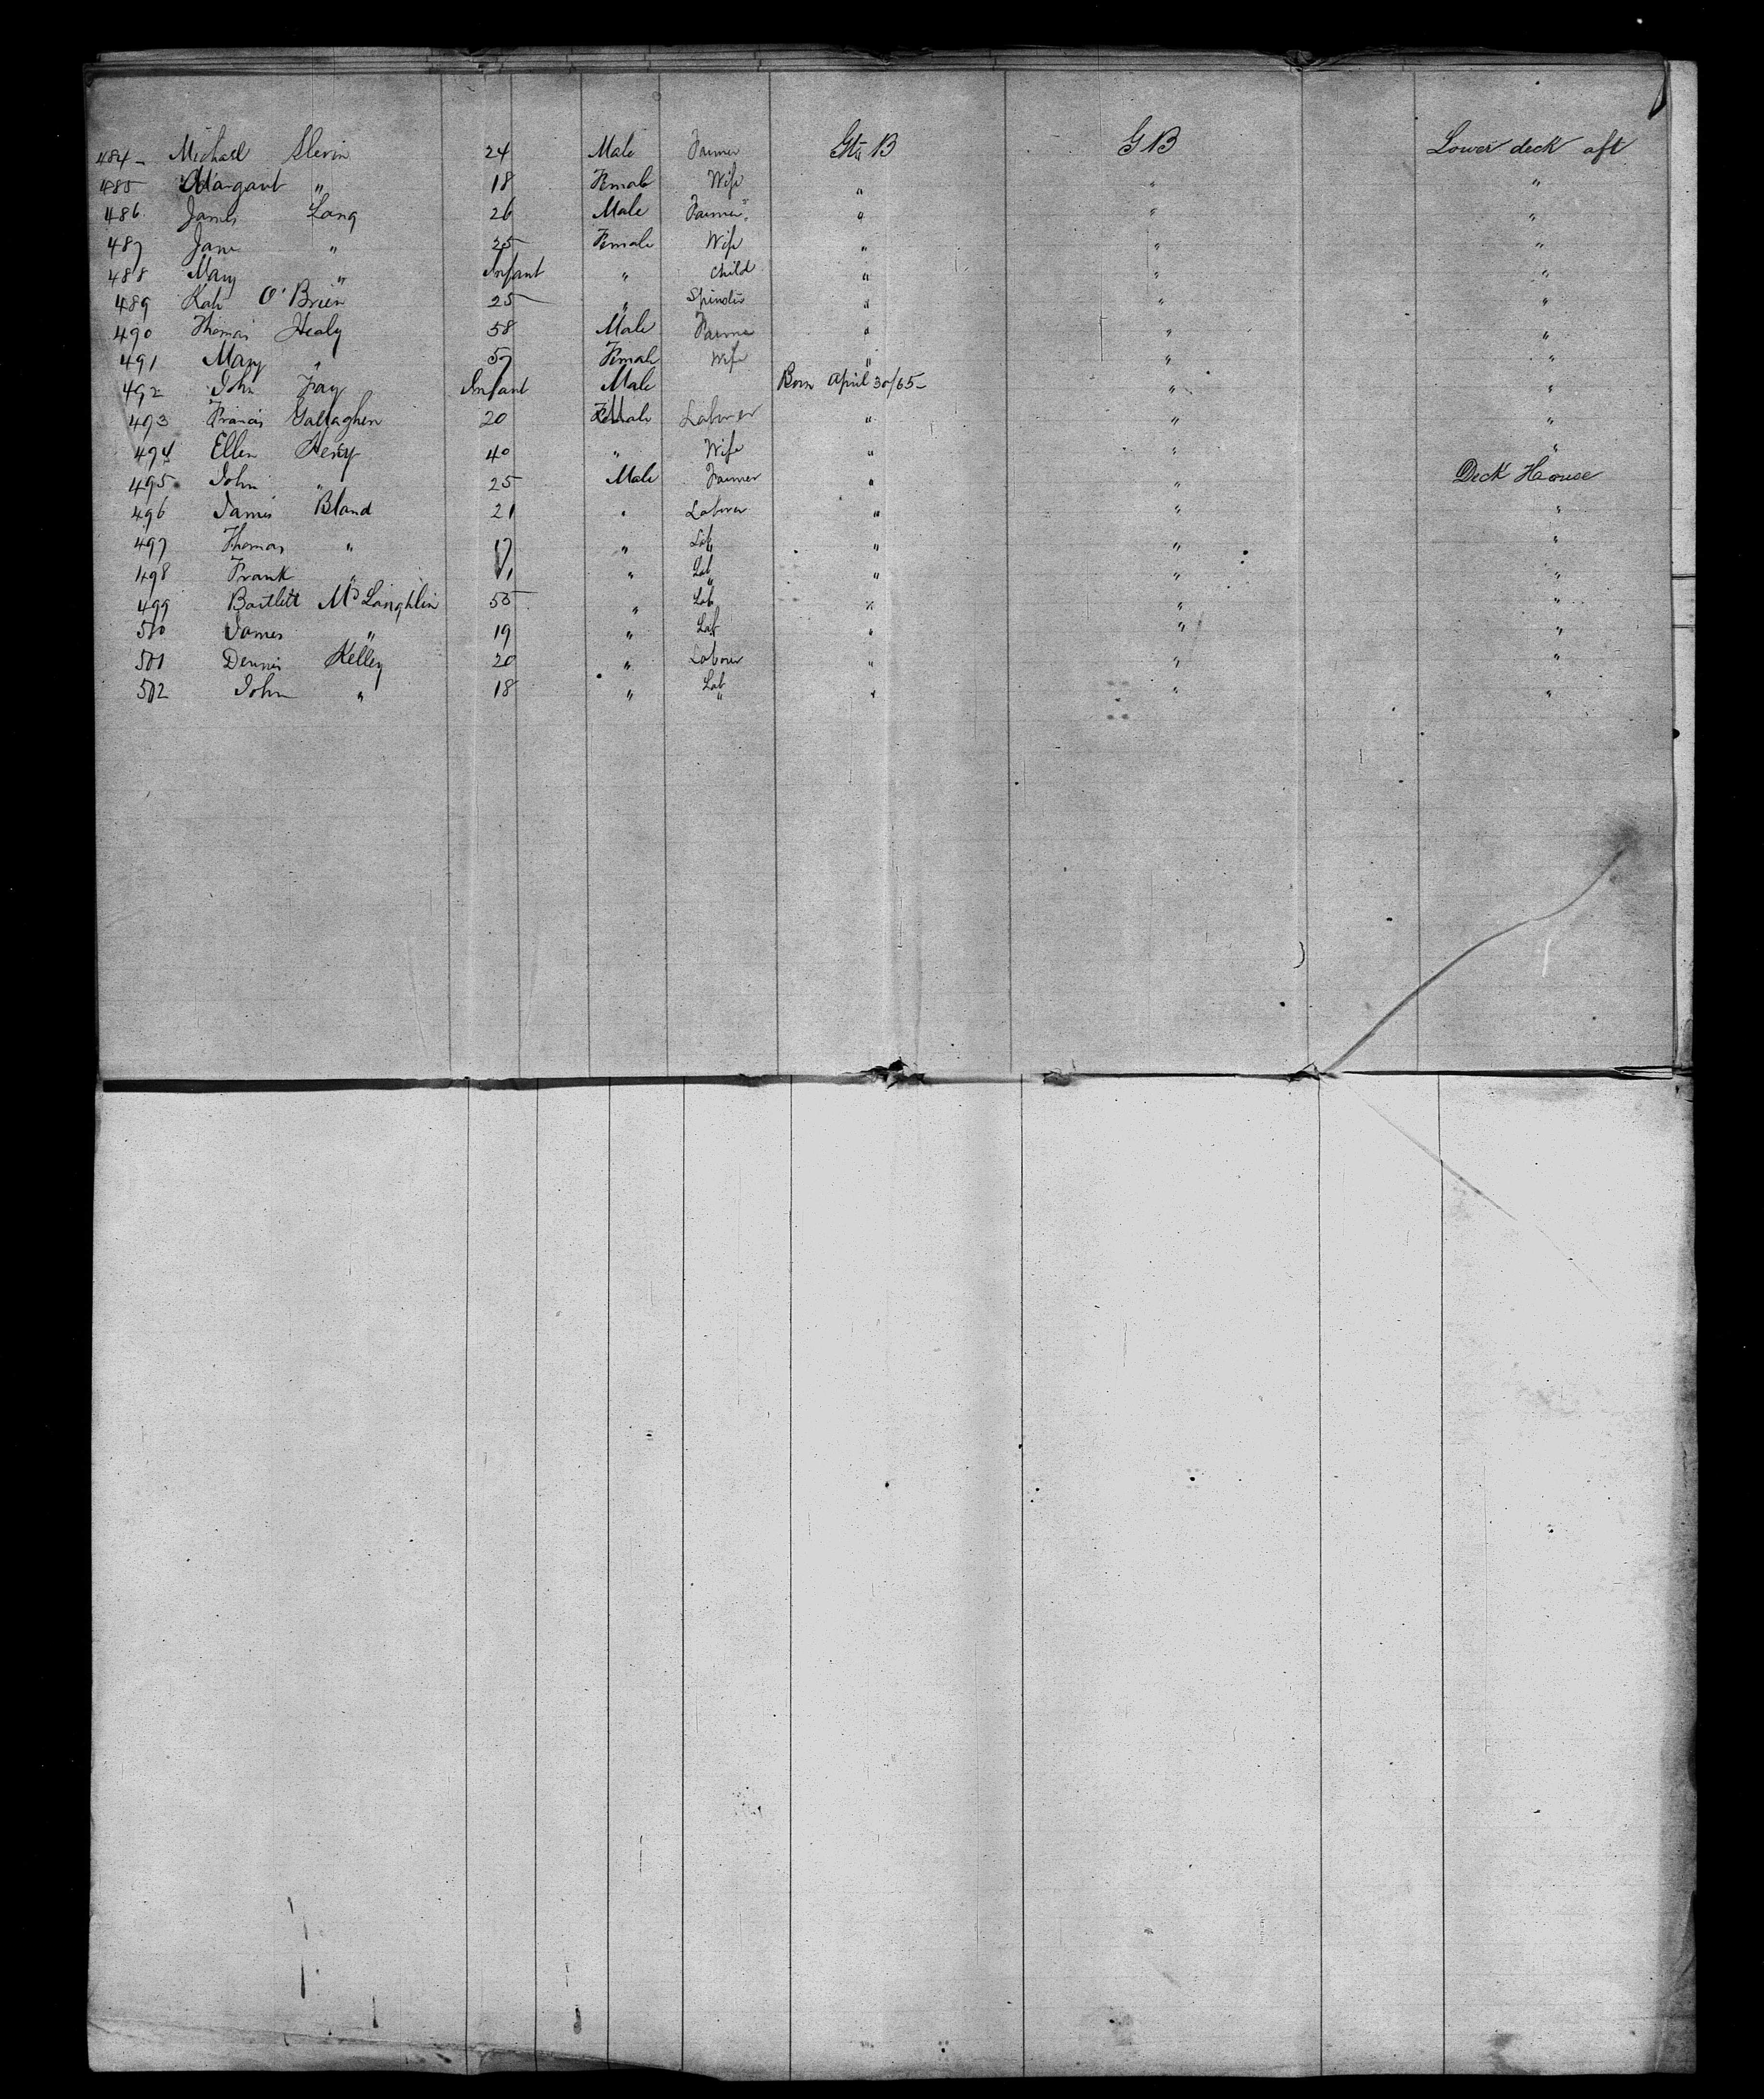 484 - Michael Slevin 24 Male Farmer Gt. B G B Lower deck aft
485 Margaret " 18 Female Wife " " "
486 James Lang 26 Male Farmer " " "
487 Jane " 25 Female Wife " " "
488 Mary " Infant " Child " " "
489 Kate O'Brien 25 " Spinster " " "
490 Thomas Healy 58 Male Farmer " " "
491 Mary " 57 Female Wife " " "
492 John Fay Infant Male Born April 30/65 - " "
493 Francis Gallagher 20 Male Laborer " " "
494 Ellen 40 " Wife " " "
495 John " 25 Male Farmer " " Deck House
496 James Bland 21 " Laborer " " "
497 Thomas " 17 " Lab " " " "
498 Frank " 11 " Lab " " " "
499 Bartlett McLaughlin 55 " Lab " " "
500 James " 19 " Lab " " "
501 Dennis Kelley 20 " Laborer " " "
502 John " 18 " Lab " " " "